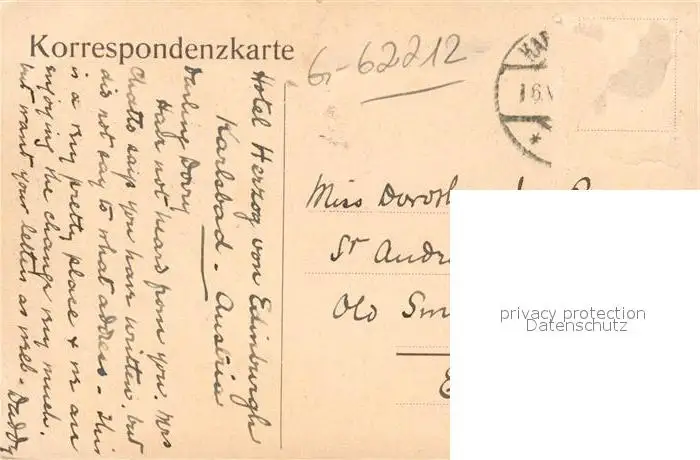 Korrespondenzkarte
6,- 62212
KAR
16.V
Hotel Herzog von Edinburgh
Karlsbad. Austria
Darling Dorry
Have not heard from you. Mrs
Chatto says you have written, but
did not say to what address. This
is a very pretty place & we are
enjoying the change very much.
but want your letters as well. Daddy
Miss Doroth
St Andre
Old Sm
E
privacy protection
Datenschutz